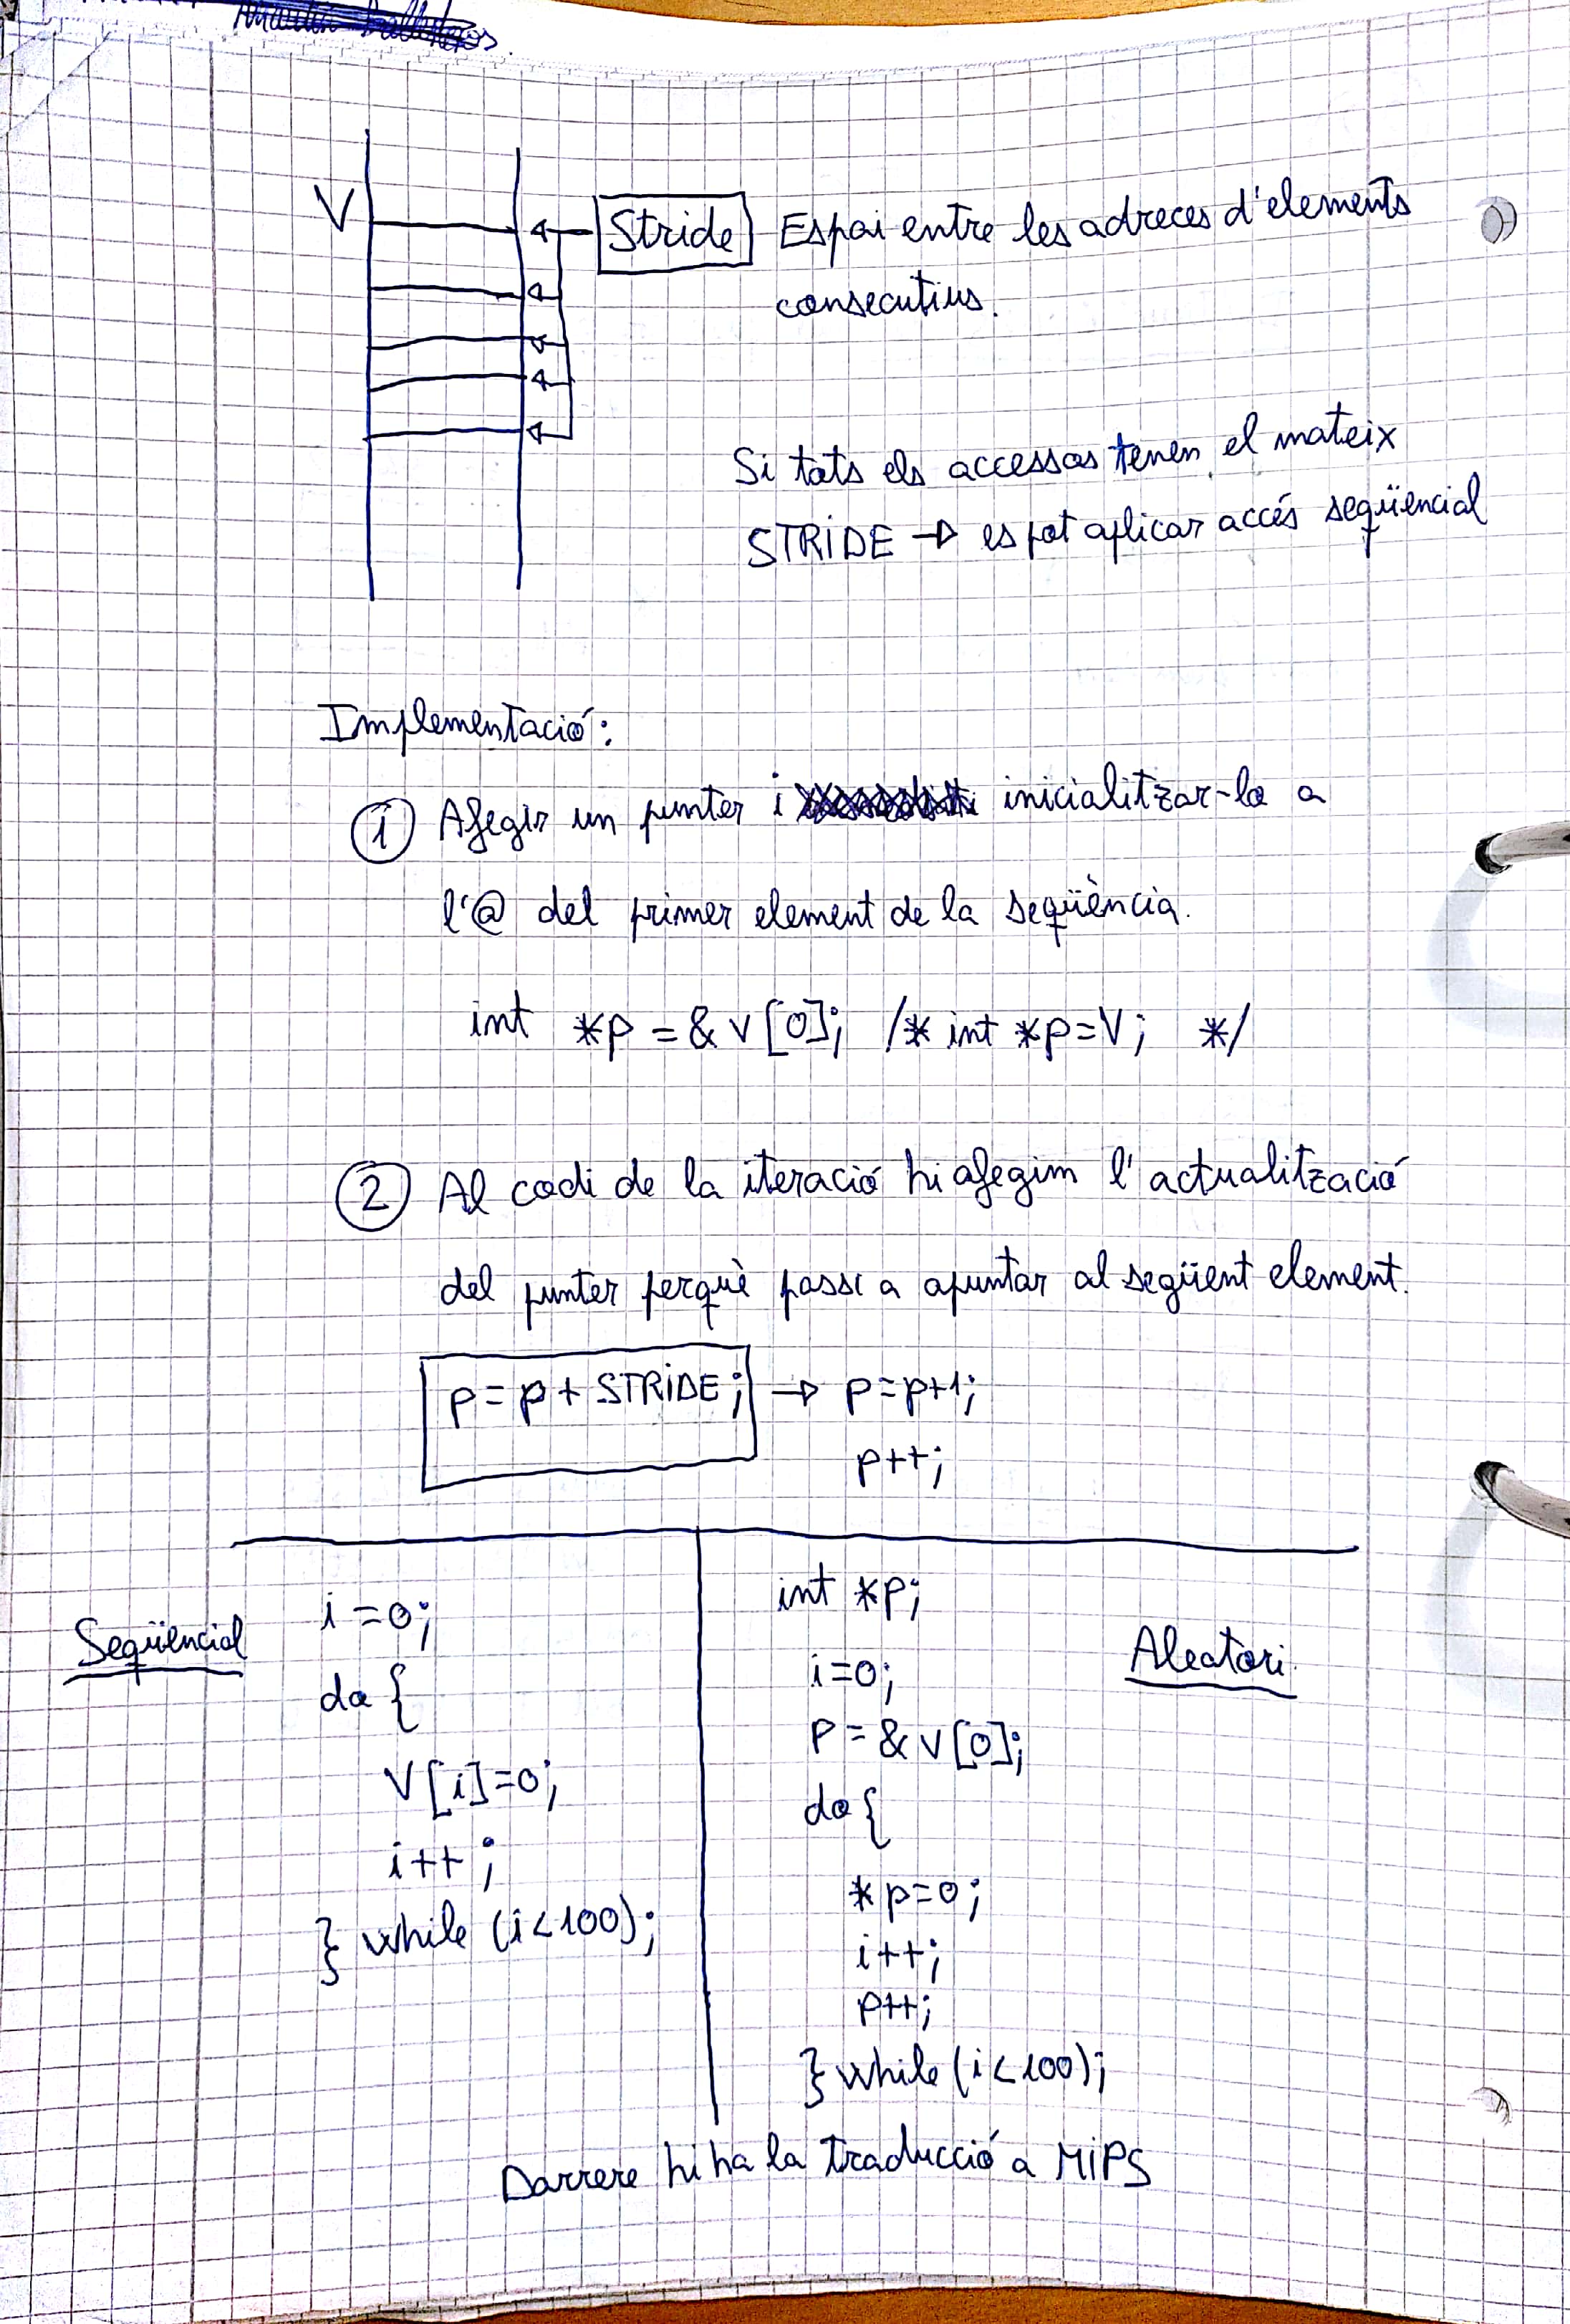 V
Stride Espai entre les adreces d'elements
consecutius.
Si tots els accessos tenen el mateix
STRIDE → es pot aplicar accés seqüencial
Implementació:
① Afegir un punter i inicialitzar-lo a
l'@ del primer element de la seqüència.
int *p = & v[0]; /* int *p=V; */
② Al codi de la iteració hi afegim l'actualització
del punter perquè passi a apuntar al següent element.
p = p + STRIDE; → p=p+1;
p++;
Seqüencial
i=0;
do {
V[i]=0;
i++;
} while (i<100);
Aleatori.
int *p;
i=0;
P = & v[0];
do {
*p=0;
i++;
p++;
} while (i<100);
Darrere hi ha la traducció a MIPS